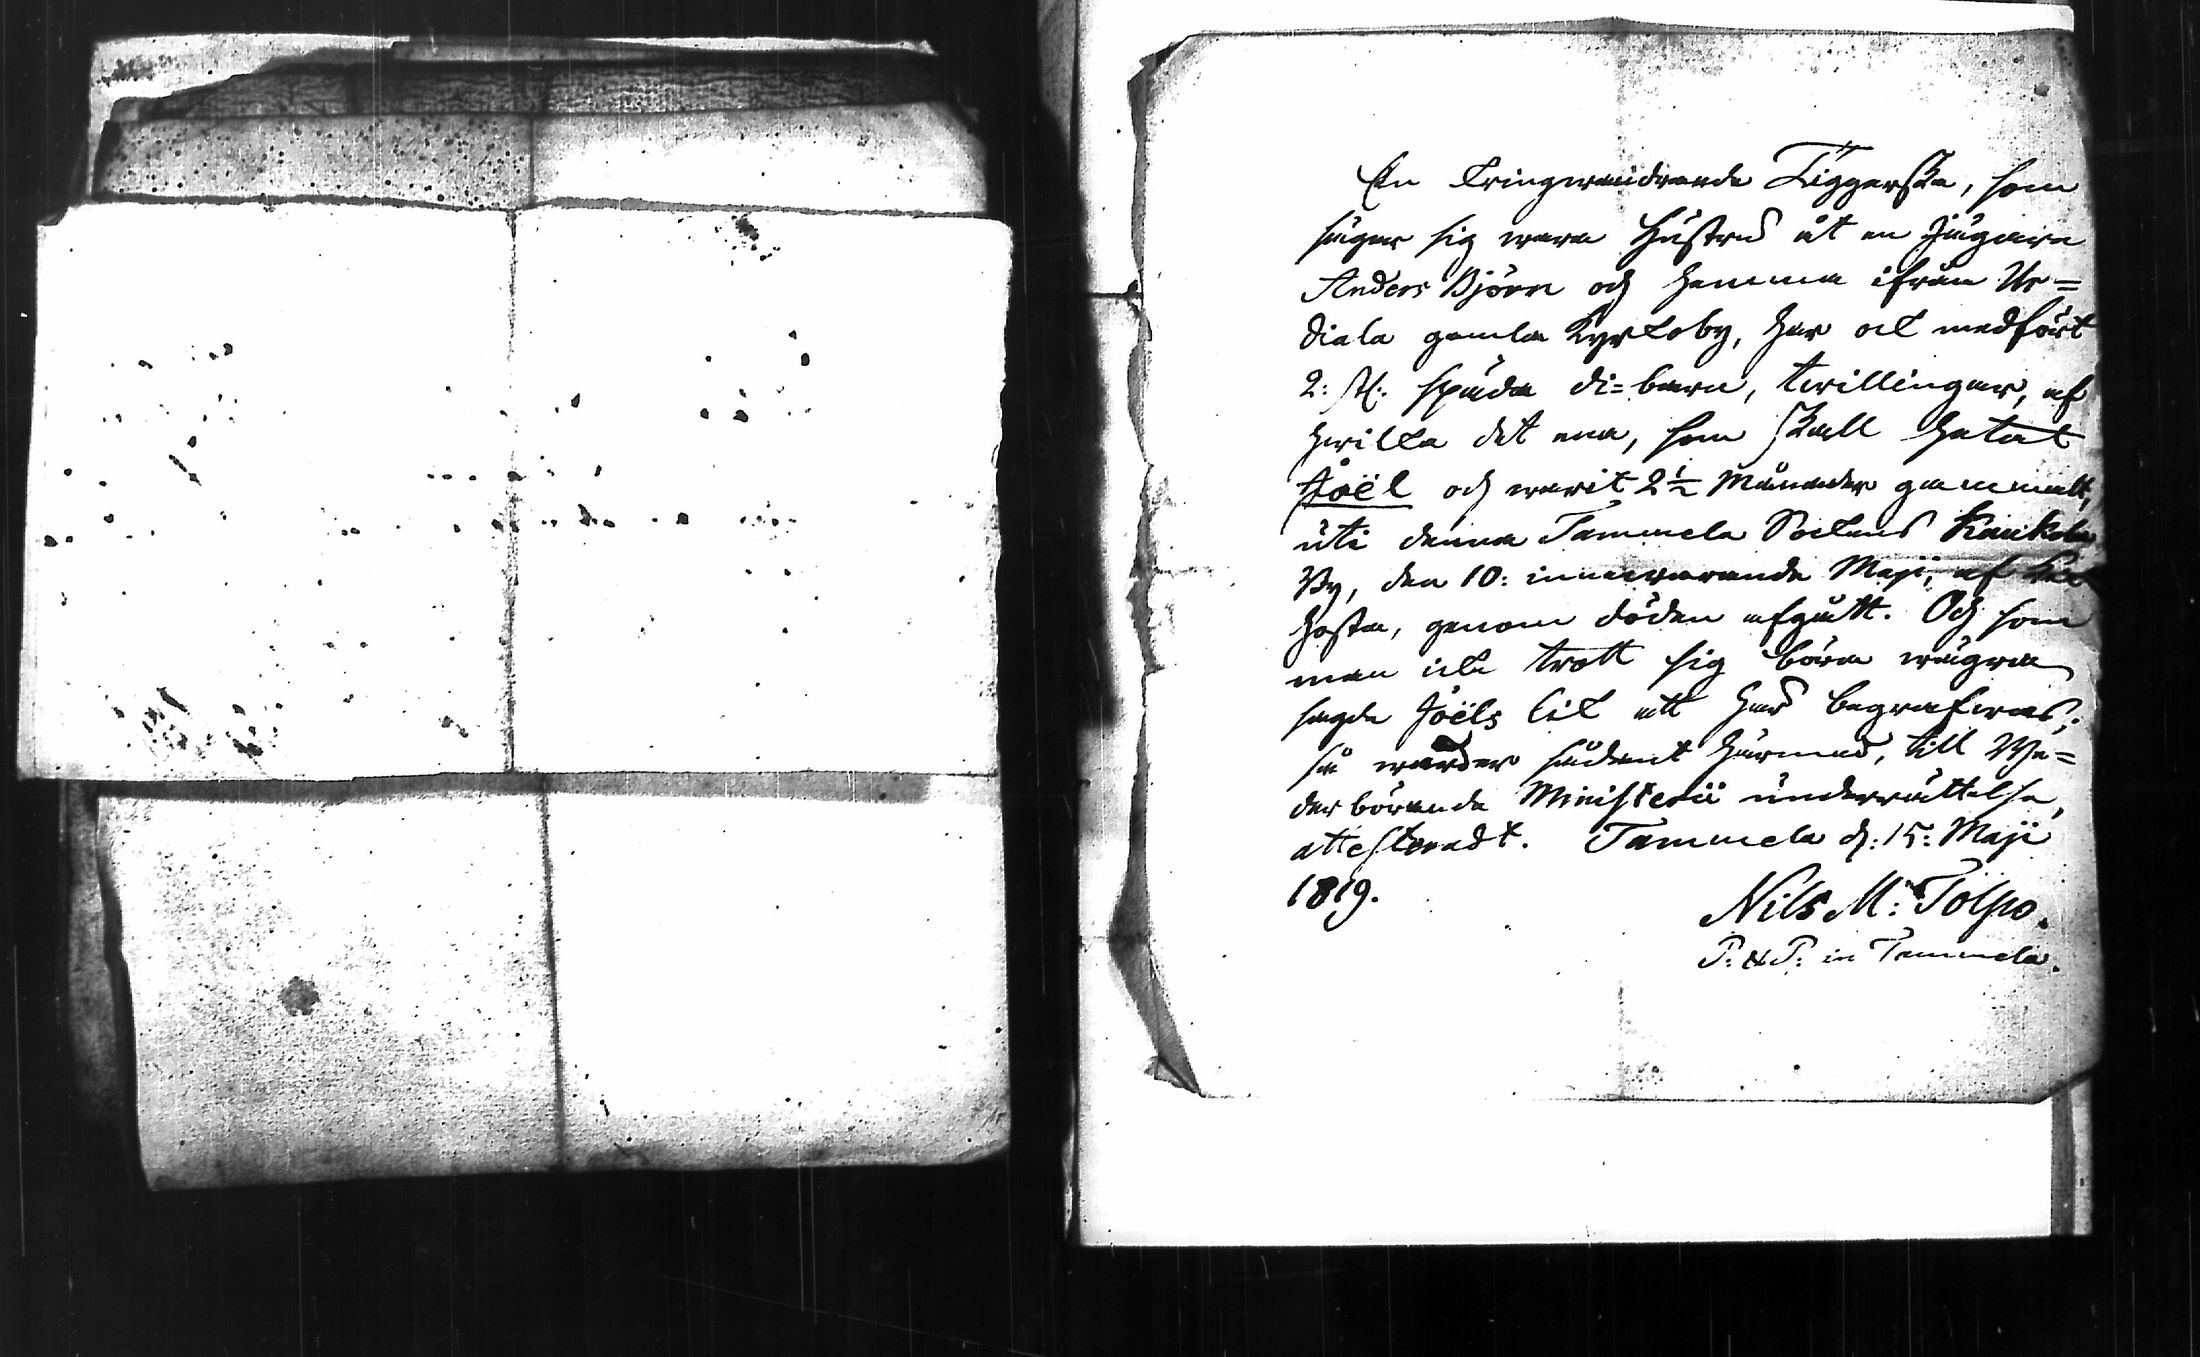 En kringwandrande Tiggerska, som
säger sig wara Hustru åt en Jägare
Anders Björn och hemma ifrån Ur=
diala gamla Kyrkoby, har ock medfört
2: st: späda di=barn, twillingar, af
hwilka det ena, som skall hetat
Joël och warit 2 1/2 Månader gammalt,
uti denna Tammela Sockens Kaukola
By, den 10: innewarande Maji, af
hosta, genom döden afgått. Och som
man icke trott sig böra wägra
sagde Joëls lik att här begrafwas;
så warder sådant härmed, till We=
derbörande Ministerii underrättelse,
attesteradt. Tammela d: 15: Maji
1819.
Nils M: Tolpo.
P: & P: in Tammela.